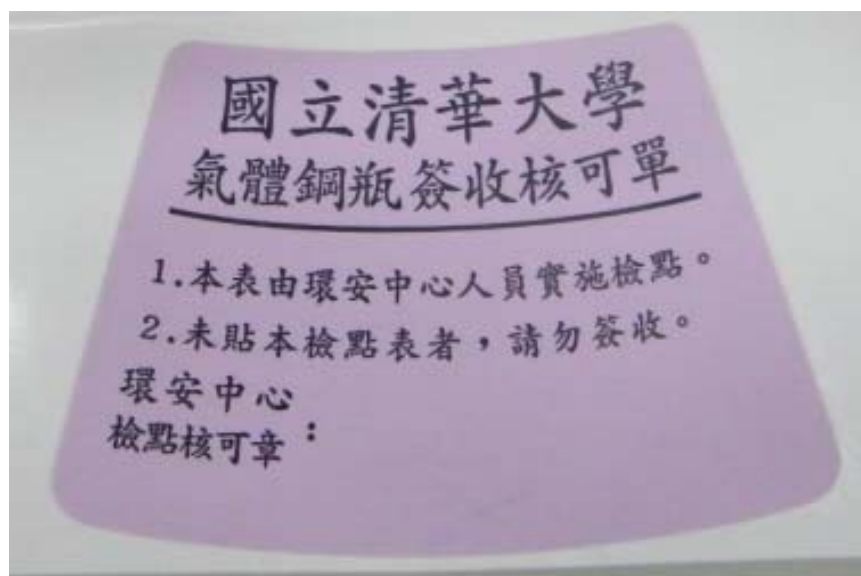 國立清華大學
氣體鋼瓶簽收核可單
1.本表由環安中心人員實施檢點。
2.未貼本檢點表者,請勿簽收。
環安中心
檢點核可章: